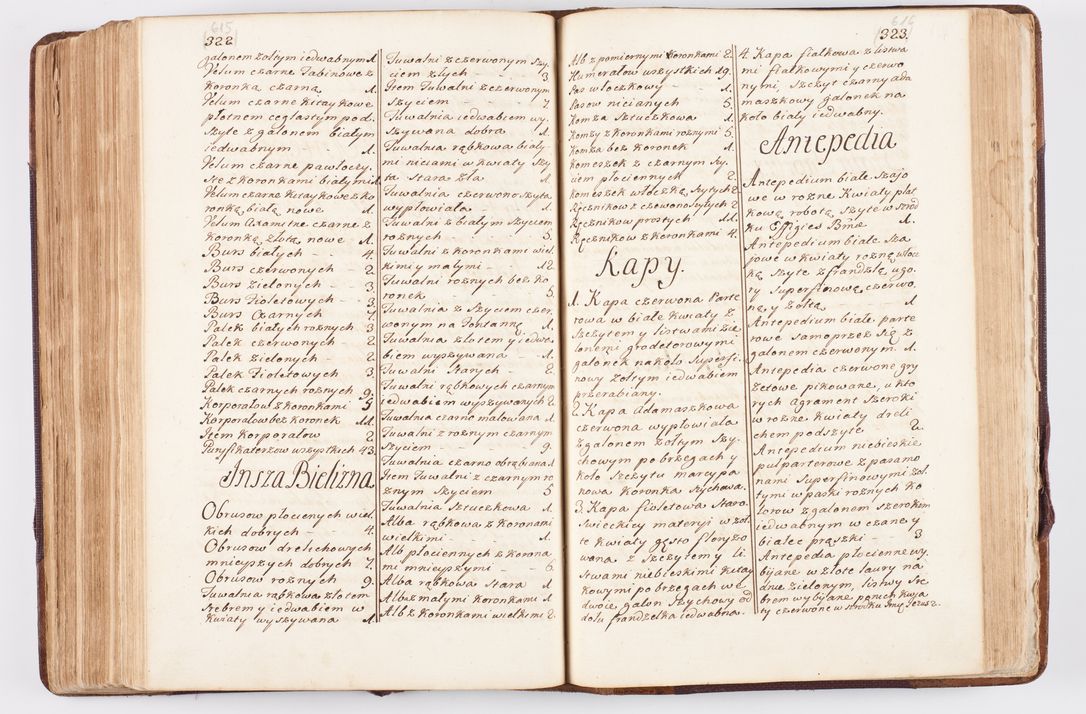 615
322
galonem żołtym iedwabnym 1.
Velum czarne Tabinowe z
Koronką czarną - - 1.
Velum czarne Kitaykowe
płotnem ceglastym pod-
szyte z galonem białym
iedwabnym - - 1.
Velum czarne pawłoczy-
ste z koronkami białymi 1.
Velum czarne Kitaykowe z ko
ronką białą nowe - 1.
Velum Axamitne czarne z
Koronką złotą nowe - 1.
Burs białych - - 4.
Burs czerwonych - 2
Burs Zielonych - - 3.
Burs Fioletowych - - 3.
Burs Czarnych - - 7.
Palek białych roznych 3
Palek czerwonych - 2
Palek Zielonych - - 2
Palek Fioletowych - 3.
Palek czarnych roznych 9.
Korporałow z Koronkami 5
Korporałow bez Koronek 11.
Item Korporałow - 2
Puryfikaterzow wszystkich 43.
Insza Bielizna
Obrusow płociennych wiel-
kich dobrych - - 4.
Obrusow drelichowych
mnieyszych dobrych 7.
Obrusow roznych - 9.
Tuwalnia rąbkowa złotem
srebrem y iedwabiem w
Kwiaty wyszywana - 1.
Tuwalni z czerwonym szy-
ciem złych - - 3
Item Tuwalni z czerwonym
Szyciem - - 7.
Tuwalnia iedwabiem wy-
szywana dobra - 1.
Tuwalnia rąbkowa biały-
mi niciami w kwiaty szy
ta stara zła - - 1.
Tuwalnia czerwono szyta
wypłowiała - - 1.
Tuwalni z białym szyciem
roznych - - 5.
Tuwalni z koronkami wiel-
kimi y małymi - - 12
Tuwalni roznych bez ko
ronek - - 5.
Tuwalnia z Szyciem czer-
wonym na Fontannę 1.
Tuwalnia złotem y iedwa-
biem wyszywana - 1.
Tuwalni Starych - - 2.
Tuwalni rąbkowych czarnym
iedwabiem wyszywanych 2.
Tuwalnia czarno malowana 1.
Tuwalni z roznym czarnym
szyciem - - 9.
Tuwalnia czarno obrąbiana 1.
Item Tuwalni z czarnym ro
znym Szyciem - 5
Tuwalnia Sztuczkowa 1.
Alba rąbkowa z Koronami
wielkimi - - 1.
Alb płociennych z korona
mi mnieyszymi - - 6.
Alba rąbkowa stara 1
Alba z małymi Koronkami 1
Alb z koronkami wielkimi 2.
616
323.
Alb z pomiernymi Koronkami 2
Humerałow wszystkich 29.
Pas włoczkowy - - 1.
Pasow nicianych - 5.
Komża Sztuczkowa 1.
Komży z Koronkami roznymi 5.
Komża bez Koronek 1.
Komeszek z czarnym szy-
ciem płociennych - 2
Komeszek włoczką szytych 2
Ręcznikow z czerwono szytych 2
Ręcznikow prostych - 11.
Ręcznikow z Koronkami 4.
Kapy.
1. Kapa czerwona Parte
rowa w białe Kwiaty z
szczytem y listwami zie
lonemi grodetorowymi
galonek na koło Superfi-
nowy żołtym iedwabiem
przerabiany.
2. Kapa Adamaszkowa
czerwona wypłowiała
z galonem żołtym Szy-
chowym po brzegach y
koło szczytu marcypa
nowa Koronka Szychowa.
3. Kapa fioletowa Stara
Swieckiey materyi w zoł-
te kwiaty gęsto floryzo
wana z Szczytem y li
stwami niebieskimi kitay
kowymi po brzegach w
dwoie galon Szychowy od
dołu frandzelka iedwabna.
4. Kapa fiałkowa z listwa
mi fiałkowymi y czerwo
nymi, szczyt czarny ada
maszkowy galonek na
koło biały iedwabny.
Antepedia
Antepedium białe Szajo
we w rozne Kwiaty płat
kową robotą szyte w srod
ku Effigies Bmæ - 1.
Antepedium białe Sza
jowe w kwiaty rozną włocz
ką szyte z frandzlą u go-
ry Superfinową czerwo
ną y żołtą - - 1
Antepedium białe parte
rowe samoprzez się z
galonem czerwonym. 1.
Antepedia czerwone gry
zetowe pikowane, u kto
rych Agrament szeroki
w rozne kwiaty dreli
chem podszyte - 2.
Antepedium niebieskie
pulparterowe z paramo
nami Superfinowymi żoł-
tymi w paski roznych ko
lorow z galonem szerokim
iedwabnym w czarne y
białe prążki - - 3
Antepedia płocienne wy-
bijane w złote laury na
dnie zielonym, listwy sre
brem wybijane
ty czerwone w srodku Imę Jezus 2.